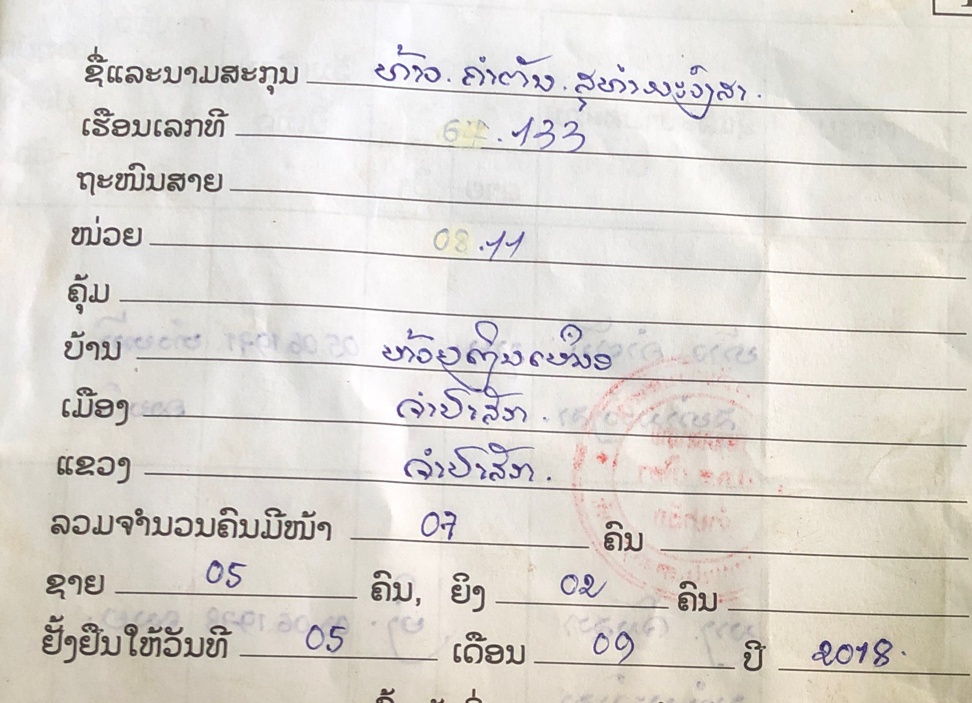 ຊື່ແລະນາມສະກຸນ ທ້າວ. ຄຳຕັນ. ສຸທຳມະວົງສາ.
ເຮືອນເລກທີ 133
ຖະໜົນສາຍ
ໜ່ວຍ 08.11
ຄຸ້ມ
ບ້ານ
ເມືອງ ຈຳປາສັກ.
ແຂວງ ຈຳປາສັກ.
ລວມຈຳນວນຄົນມີໜ້າ 07 ຄົນ
ຊາຍ 05 ຄົນ, ຍິງ 02 ຄົນ
ຢັ້ງຢືນໃຫ້ວັນທີ 05 ເດືອນ 09 ປີ 2018.